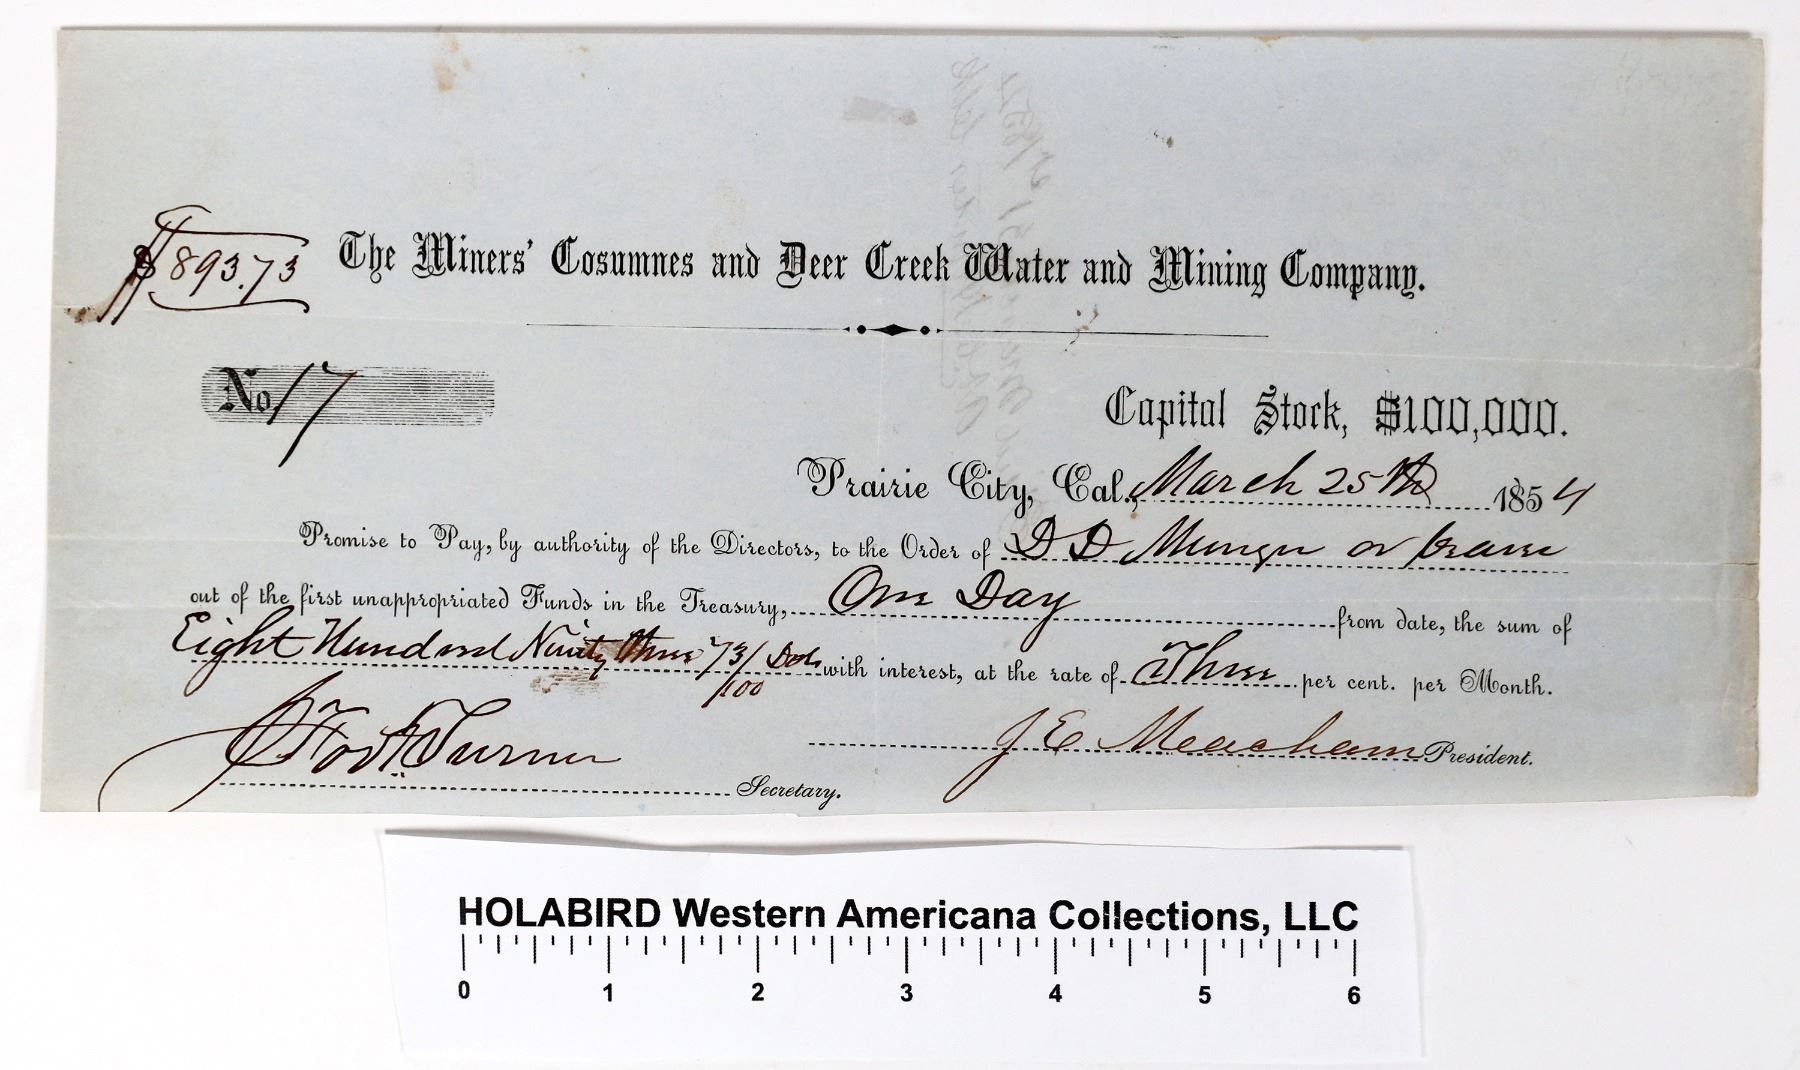 $893.73 The Miners' Cosumnes and Deer Creek Water and Mining Company.
No 17
Capital Stock, $100,000.
Prairie City, Cal., March 25th 1854
Promise to Pay, by authority of the Directors, to the Order of D D Munger or bearer
out of the first unappropriated Funds in the Treasury, One Day from date, the sum of
Eight Hundred Ninety Three 73/100 Dols with interest, at the rate of Three per cent. per Month.
J E Meacham President.
Turner Secretary.
HOLABIRD Western Americana Collections, LLC
0 1 2 3 4 5 6